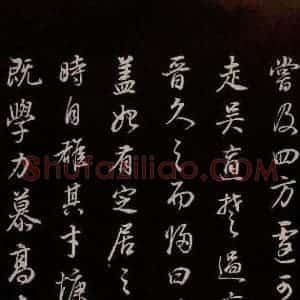 嘗及四方雲可
走吳直楚過
晉久之而歸曰
蓋始有定居之
時自雄其才慷
既學力慕高
Shufaziliao.com